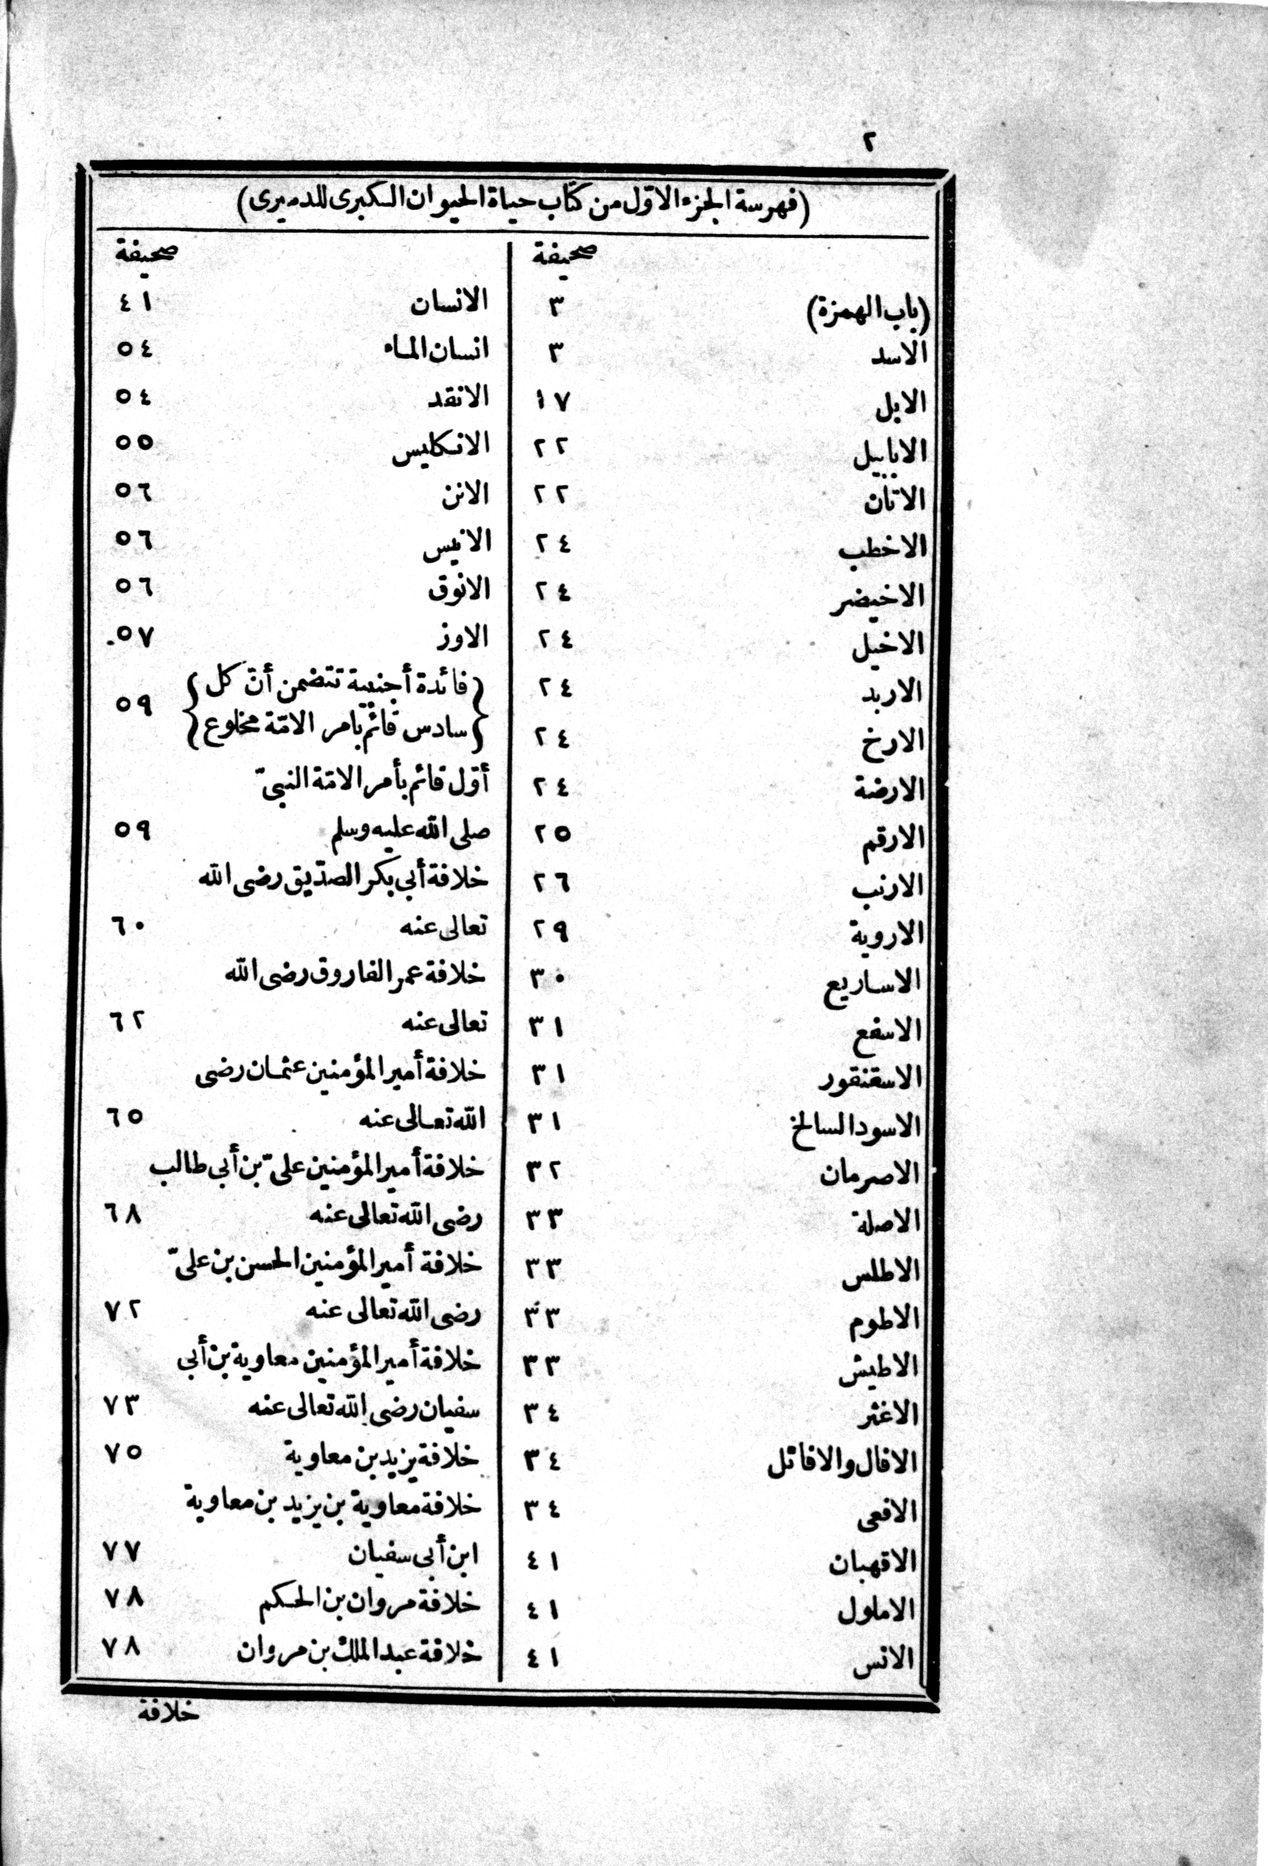 ٢
(فهرسة الجزء الاوّل من كتاب حياة الحيوان الكبرى للدميرى)
صحيفة
(باب الهمزة) ٣
الاسد ٣
الابل ١٧
الابابيل ٢٢
الاتان ٢٢
الاخطب ٢٤
الاخيضر ٢٤
الاخيل ٢٤
الاربد ٢٤
الارخ ٢٤
الارضة ٢٤
الارقم ٢٥
الارنب ٢٦
الاروية ٢٩
الاساريع ٣٠
الاسفع ٣١
الاسقنقور ٣١
الاسود السالخ ٣١
الاصرمان ٣٢
الاصلة ٣٣
الاطلس ٣٣
الاطوم ٣٣
الاطيش ٣٣
الاغثر ٣٤
الافال والافائل ٣٤
الافعى ٣٤
الاقهبان ٤١
الاملول ٤١
الانس ٤١
صحيفة
الانسان ٤١
انسان الماء ٥٤
الانقد ٥٤
الانكليس ٥٥
الانن ٥٦
الانيس ٥٦
الانوق ٥٦
الاوز ٥٧
{فائدة أجنبية تتضمن أنّ كل
سادس قائم بامر الامّة مخلوع} ٥٩
أوّل قائم بأمر الامّة النبىّ
صلى الله عليه وسلم ٥٩
خلافة أبى بكر الصدّيق رضى الله
تعالى عنه ٦٠
خلافة عمر الفاروق رضى الله
تعالى عنه ٦٢
خلافة أمير المؤمنين عثمان رضى
الله تعالى عنه ٦٥
خلافة أمير المؤمنين علىّ بن أبى طالب
رضى الله تعالى عنه ٦٨
خلافة أمير المؤمنين الحسن بن علىّ
رضى الله تعالى عنه ٧٢
خلافة أمير المؤمنين معاوية بن أبى
سفيان رضى الله تعالى عنه ٧٣
خلافة يزيد بن معاوية ٧٥
خلافة معاوية بن يزيد بن معاوية
ابن أبى سفيان ٧٧
خلافة مروان بن الحكم ٧٨
خلافة عبد الملك بن مروان ٧٨
خلافة